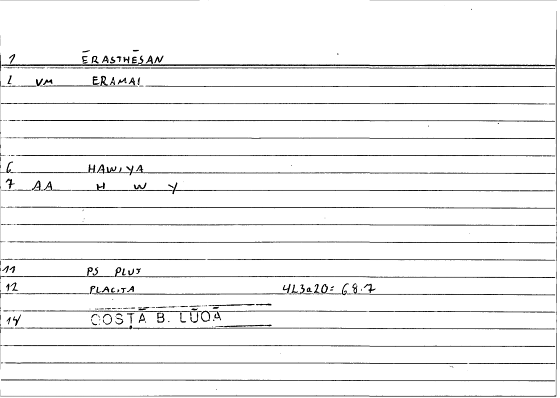 1 ĒRASTHĒSAN
2 VM ERAMAI
6 HAWIYA
7 AA H W Y
11 PS PLUT
12 PLACITA 4L3a20= 68.7
14 COSṬĀ B. LŪQĀ